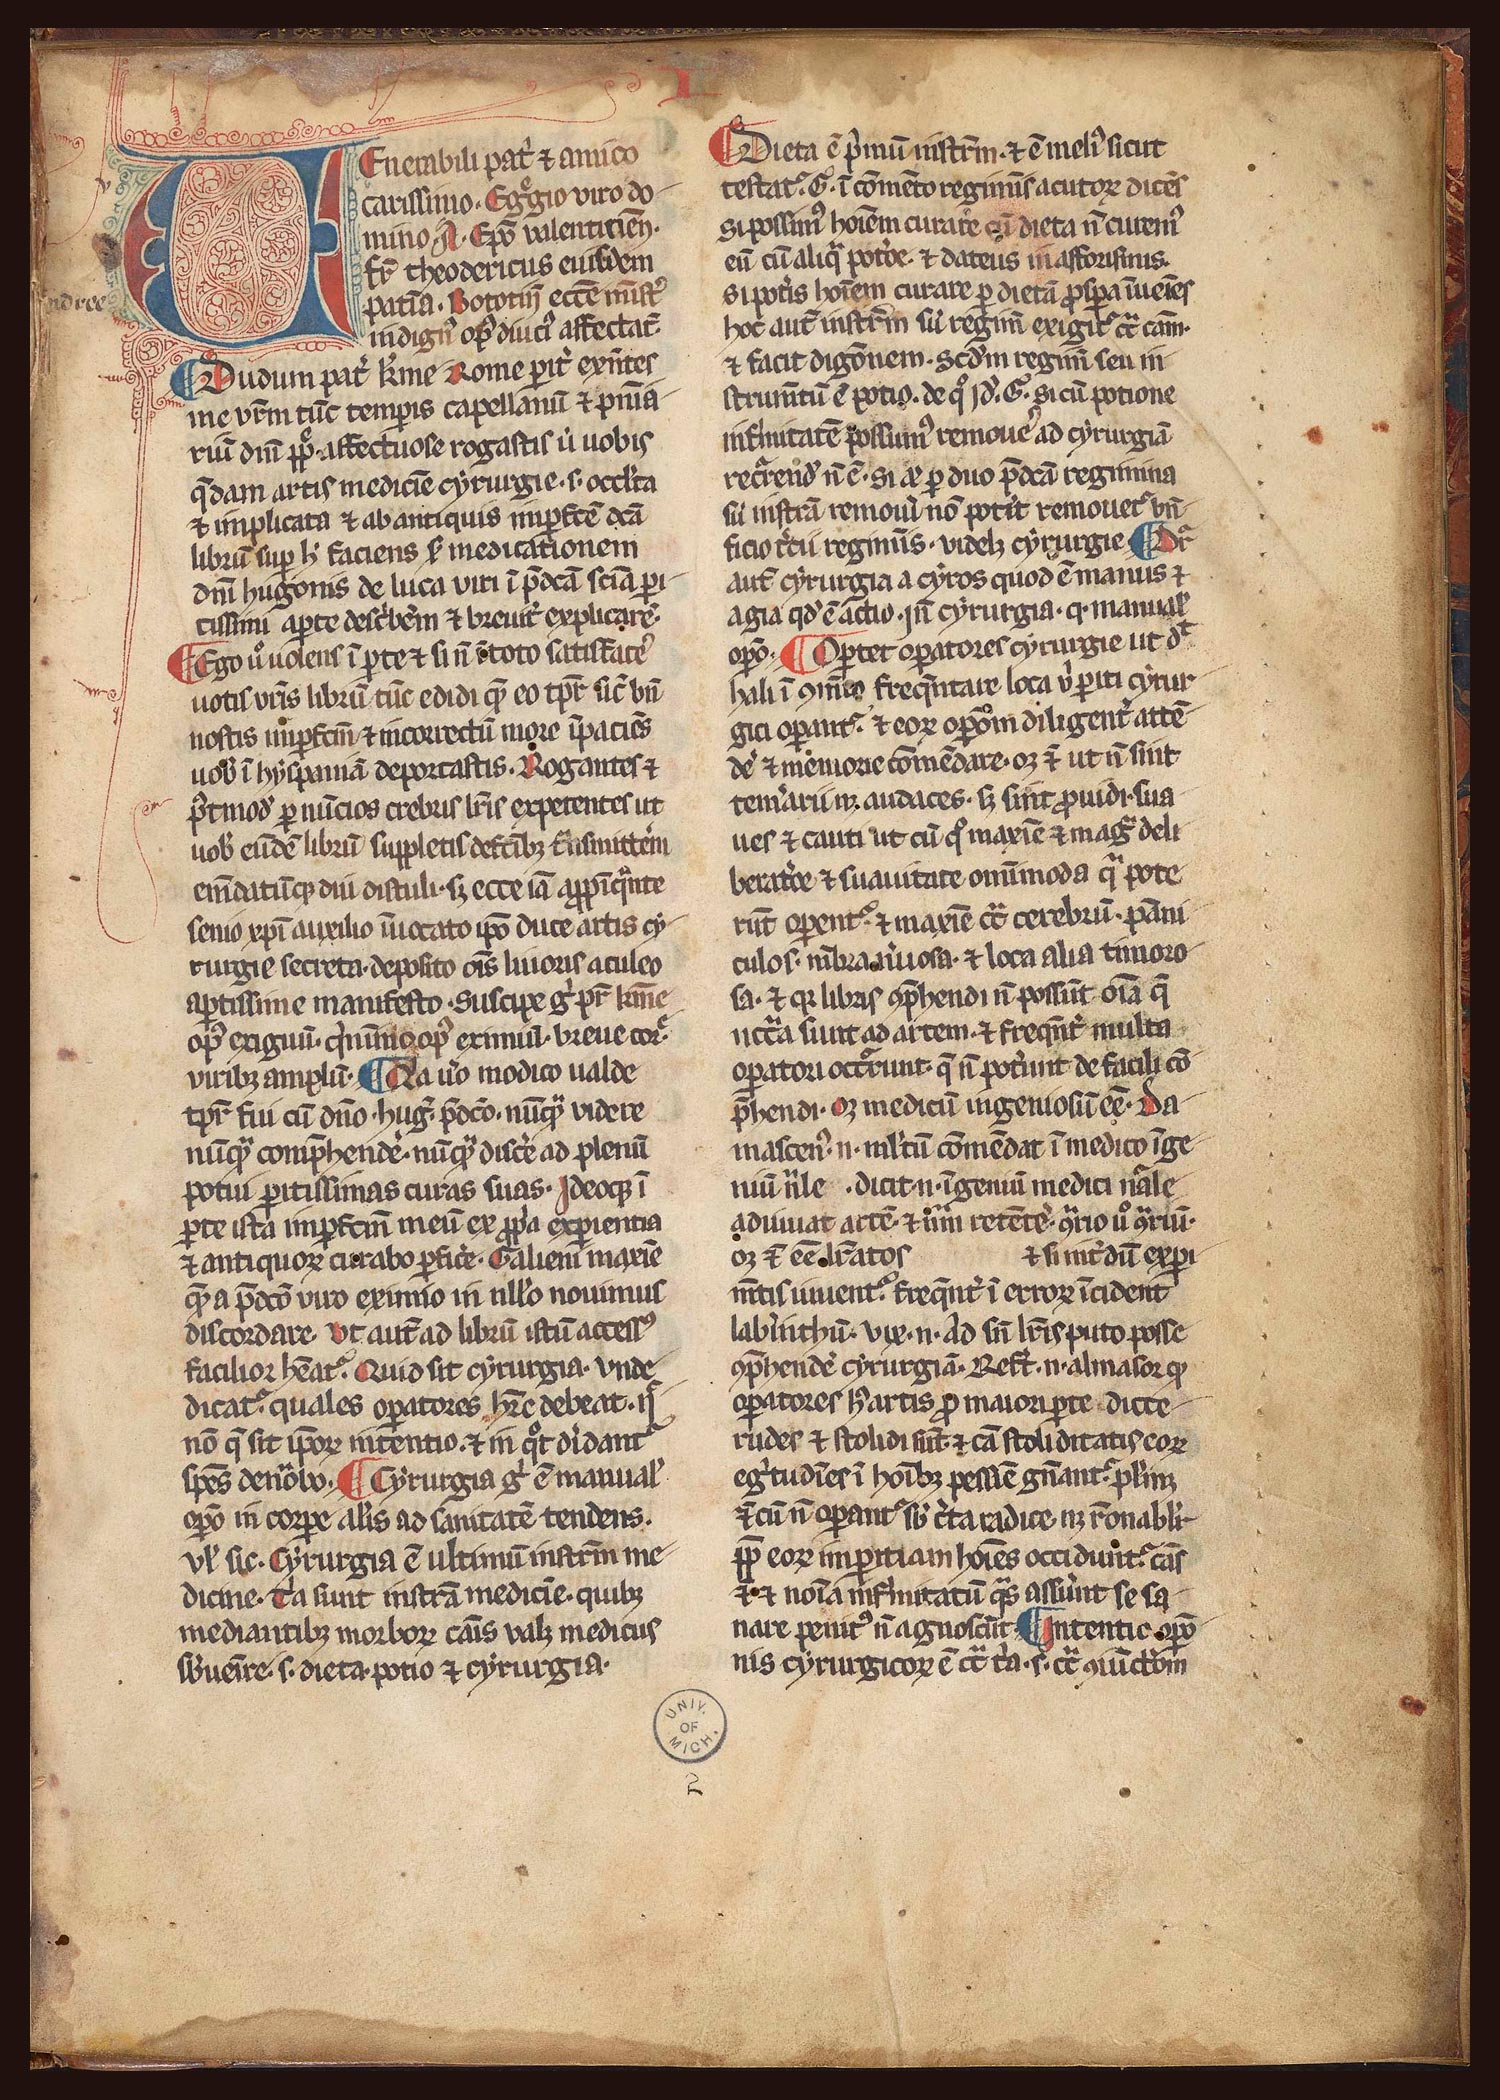 I
VEnerabili pat᷑ ⁊ amico
carissimo. Egͦgio viro do
mino A. Ep̄o valentitien̄.
fr̄ theodericus eiusdem
patiā. Bototin̄ ecc̄e minist᷑
indign᷑ op᷑ diuci᷑ affectat᷑
ndree
Dudum pat᷑ k̄me Rome perit᷑ exn̄tes
me vr̄m tūc temporis capellanū ⁊ pnīa
riū dn̄i pp̄. affectuose rogastis ù uobis
q̄dam artis medicīe cyrurgie .s. occl̓ta
⁊ implicata ⁊ ab antiquis imperfcē dc̄a
librū super h̓ faciens ẜ medicationem
dn̄i hugonis de luca viri ī p̄dc̄a sciā peri
tissimi aperte desc̓bem̄ ⁊ breuit᷑ explicare᷑.
Ego uͦ uolens ī perte ⁊ si n̄ ī toto satisface᷑
uotis vr̄is librū tūc edidi q̄ eo tpr̄ sic̄ vn̄
nostis imperfcm̄ ⁊ incorrectū more īpaciēs
uob̓ ī hyspaniā deportastis. Rogantes ⁊
p᷑tmod᷑ per nūcios crebris lr̄is expetentes ut
uob̓ eūdē librū suppletis defcībꝫ t̄nsmittem̓
em̄datūq; diu distuli. sꝫ ecce iā appīq̄nte
senio xp̄i auxilio īuocato ip̄o duce artis cy
rurgie secreta. deposito oīs liuoris aculeo
aptissime manifesto. Suscipe g̓ pr̄ km̄e
op᷑ exiguū. q̓nīmo op᷑ eximiū. breue cor᷑.
viribꝫ amplū. Q̓a u᷑o modico ualde
tpr̄ fui cū dn̄o. hug᷑. p̄dc̄o. nūqͣ videre
nūqͣ comp̄hende᷑. nūqͣ disc̓e ad plenū
potui peritissimas curas suas. Ideoq; ī
perte ista imperfcm̄ meū ex pp̓a experientia
⁊ antiquoꝝ curabo perfic̓e. Galieni maxīe
q̄ a p̄dc̄o viro eximio in nll̓o nouimus
discordare. Ut aut̄ ad librū istū access᷑
facilior hēat᷑. Quid sit cyrurgia. vnde
dicat᷑. quales operatores hr̄e debeat. q̓
nō q̄ sit ip̄oꝝ intentio. ⁊ in qͦt diuidant᷑
spēs denōbo. Cyrurgia g̓ ē manual̓
op̄o in corpe al̓is ad sanitatē tendens.
vl̓ sic. Cyrurgia ē ultimū instr̄m me
dicine. t̓a sunt instrā medicīe. quibꝫ
mediantibꝫ morboꝝ cāis valꝫ medicus
sb̓ueīre .s. dieta. potio ⁊ cyrurgia.
Dieta ē p̓mū instr̄m. ⁊ ē meli᷑ sicut
testat᷑ .G. ī com̄ēto regimīs acutoꝝ dicēs
Si possim᷑ hoīem curare cū dieta n̄ curem᷑
eū cū aliqͣ potōe. ⁊ dateus in afforismis.
si potis hoīem curare per dietā p̄spa īueīes
hoc aut̄ instr̄m siu᷑ regim̄ exigit᷑ c̄ cam̄.
⁊ facit digōnem. Scd̓m regim̄ seu in
strumtū ē potio. de qͦ id᷑ .G. si cū potione
infirmitatē possum᷑ remoue᷑ ad cyrurgiā
recͣrend᷑ n̄ ē. si aꝉ per duo p̄dc̄a regimina
siu᷑ instrā remoui nō potīt remouet᷑ bn̄
ficio t᷑cii regimīs. videlꝫ cyrurgie Dr̄
aut̄ cyrurgia a cyros quod ē manus ⁊
agia qd᷑ ē actio. in̄ cyrurgia. q. manual̓
op̄o. Oportet operatores cyrurgie ut d᷑t
hali ī 9mīto freq̄ntare loca ù periti cyrur
gici operant᷑. ⁊ eoꝝ op̄om diligent᷑ attē
de᷑ ⁊ memorie com̄ēdare. oꝫ ⁊̄ ut n̄ sint
tem̓arii nꝫ audaces. sꝫ sint puidi. sua
ues ⁊ cauti ut cū qͦ maxīe ⁊ magͣ deli
berat̓oe ⁊ suauitate omīmoda qͣ pote
rūt operent᷑. ⁊ maxīe c̄ͣ cerebrū. pāni
culos. mēbra nuosa. ⁊ loca alia timoro
sa. ⁊ qr libris 9p̄hendi n̄ possūt oīa q̄
nccīa sunt ad artem. ⁊ freq̄nt᷑ multa
operatori occͣrrunt. q̄ n̄ pot̓unt de facili cō
p̄hendi. oꝫ medicū ingeniosū eē. Da
mascen᷑ .n. ml̓tū com̄ēdat ī medico īge
niū nͣle .dicit. n. īgeniū medici nāle
adiuuat artē. ⁊ nͣm retētē. 9ͣrio uͦ 9ͣriū.
oꝫ ⁊̄ eē lrāt̓os ⁊ si int̓dū experi
mtis iuuent᷑. freq̄nt᷑ ī erroꝝ īcident
labirīthū. vix .n. ad sn̄ lr̄is puto posse
9p̄hende᷑ cyrurgiā. Refert .n. almasor q;
operatores h᷑ artis p maiori perte dicte
rudes ⁊ stolidi sūt. ⁊ cā stoliditatis eoꝝ
egͥtudīes ī hoībꝫ pessīe gn̄ant᷑. pl̓imꝫ
⁊̄ cū n̄ operant᷑ sb̓ c̓ta radice. nꝫ rōnabl̓r.
pp̄ eoꝝ imperitiam hoīes occidunt᷑. cās
⁊ ⁊ noīa infirmitatū qͣs assūnt se sa
nare penit᷑ n̄ agnoscūt. Intentic op̄o
nis cyrurgicoꝝ ē c̄ͣ t̓a. s. c̄ͣ 9iūctōm
UNIV. OF MICH.
2